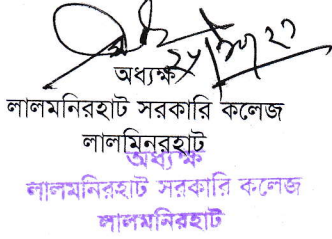 ২৮/১০/২১
অধ্যক্ষ
লালমনিরহাট সরকারি কলেজ
লালমিনরহাট
অধ্যক্ষ
লালমনিরহাট সরকারি কলেজ
লালমনিরহাট